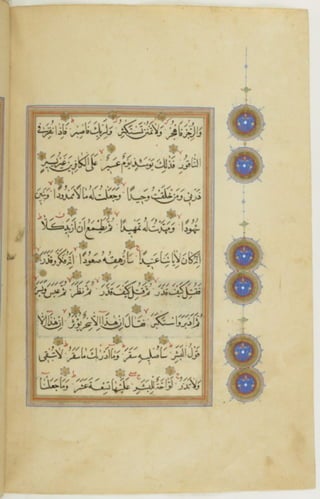 والرجز فاهجر ولا تمنن تستكثر ولربك فاصبر فاذا نقر في
الناقور فذلك يومئذ يوم عسير على الكافرين غير يسير
ذرني ومن خلقت وحيدا وجعلت له مالا ممدودا وبنين
شهودا ومهدت له تمهيدا ثم يطمع ان ازيد كلا
انه كان لاياتنا عنيدا سارهقه صعودا انه فكر وقدر
فقتل كيف قدر ثم قتل كيف قدر ثم نظر ثم عبس وبسر
ثم ادبر واستكبر فقال ان هذا الا سحر يؤثر ان هذا الا
قول البشر ساصليه سقر وما ادريك ما سقر لا تبقي
ولا تذر لواحة للبشر عليها تسعة عشر وما جعلنا